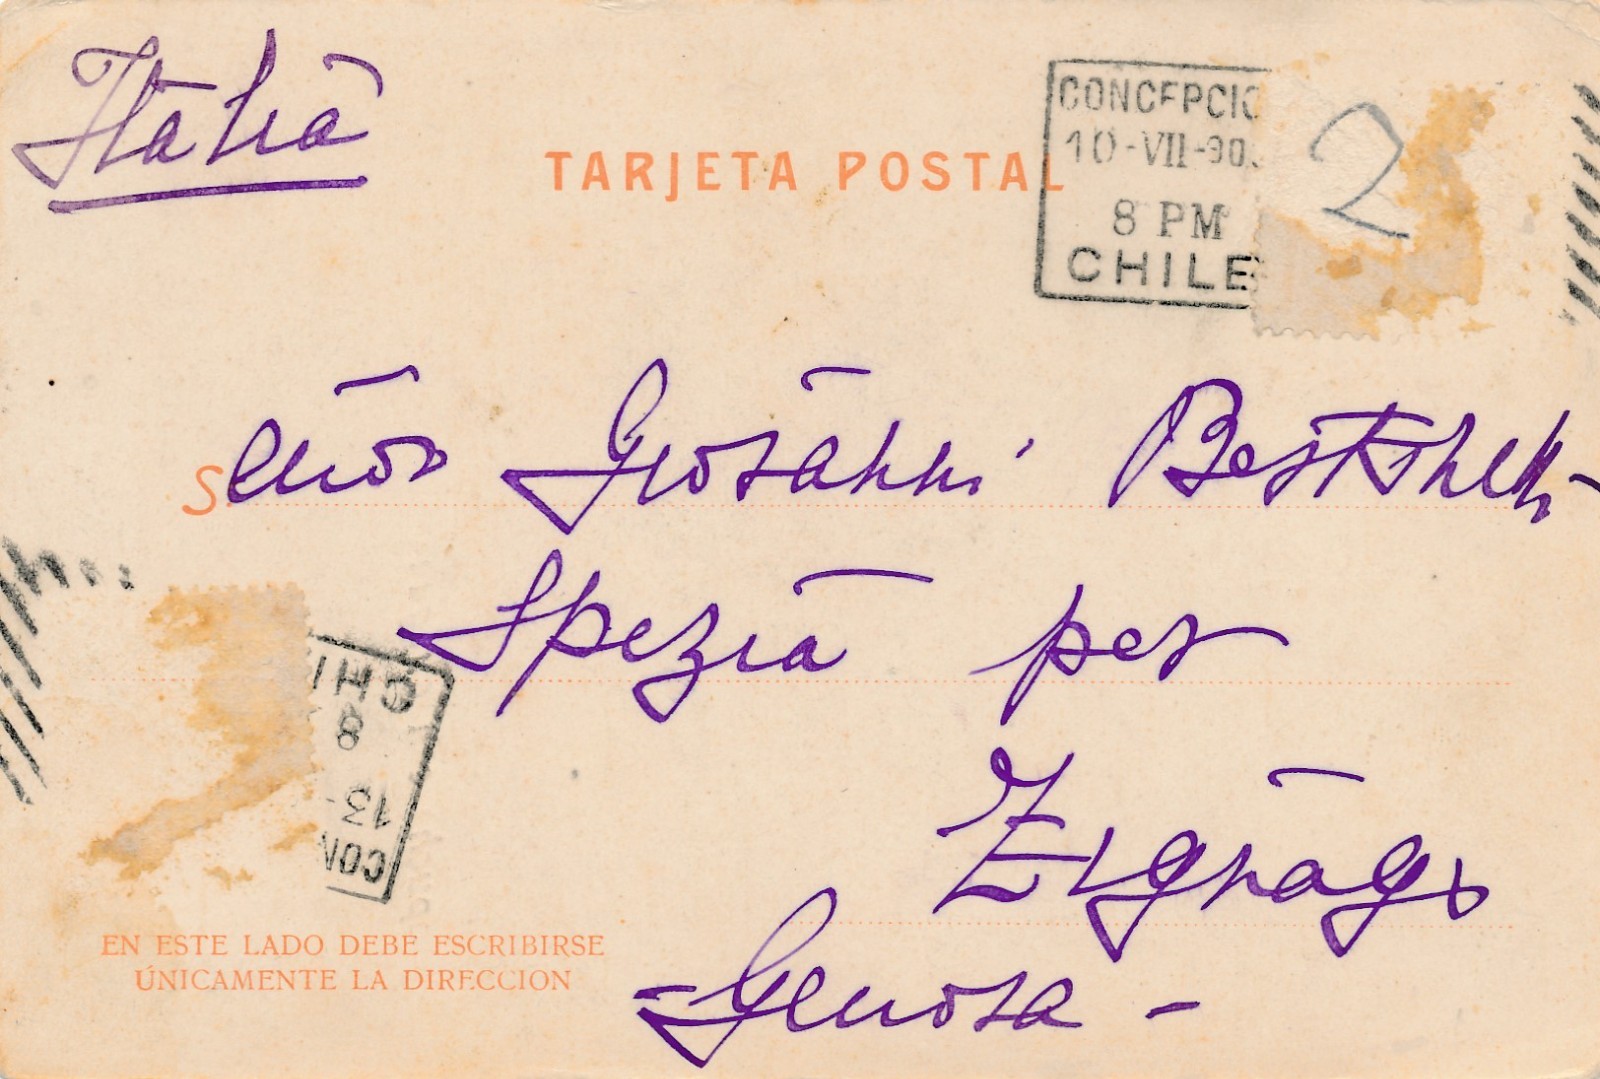 Italia
TARJETA POSTAL
CONCEPCIO
10-VII-90
8 PM
CHILE
2
Señor Giovanni
Spezia per
Zignago
- Genova -
CHI
8
13
CON
EN ESTE LADO DEBE ESCRIBIRSE
ÚNICAMENTE LA DIRECCION